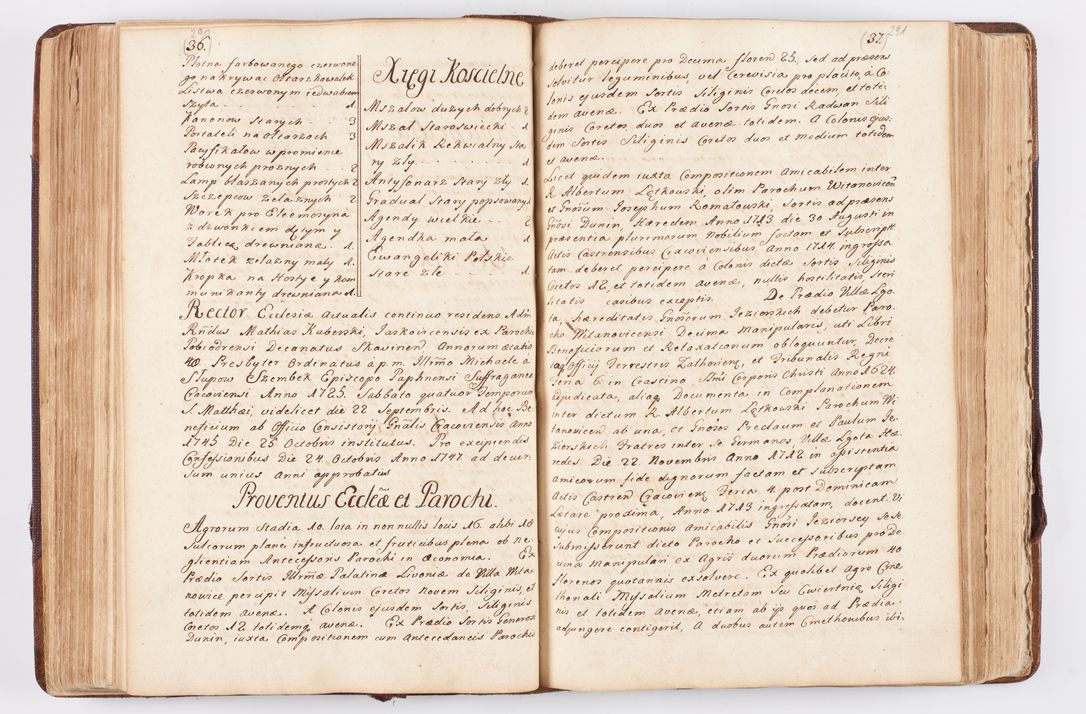 290
36.
Płotna farbowanego czerwone
go nakrywac Ołtarz kawałek
Listwa czerwonym iedwabiem
szyta 1.
Kanonow Starych 3
Portateli na Ołtarzach 3
Pacyfikałow w promienie
robionych prożnych 2
Lamp błaszanych prostych 2
Szczepcow żelaznych 2
Worek pro Eleemosyna
z dzwonkiem dętym y
Tablicą drewnianą. 1.
Młotek żelazny mały 1.
Kropka na Hostye y kom
munikanty drewniana 1.
Xięgi Koscielne
Mszałow dużych dobrych 2
Mszał Staroswiecki 1
Mszalik Rekwialny Sta
ry zły 1
Antyfonarz Stary zły 1
Graduał Stary popsowany 1
Agendy wielkie 2
Agendka mała 1
Ewangeliki Polskie
stare złe 1
Rector Ecclesiæ Actualis continuo residens Adm
Rñdus Mathias Kuberski, Jaskovicensis ex Parochia
Pobiodrensi Decanatus Skavinen Annorum ætatis
48. Presbyter Ordinatus à p. m. Illrm̃o Michaele à
Słupow Szembek Episcopo Paphnensi Suffraganeo
Cracoviensi Anno 1725. Sabbatho quatuor Temporum
S. Matthæi, videlicet die 22 Septembris. Ad hoc Be
neficium ab Officio Consistorij Gñalis Cracoviensis Anno
1745 Die 25 Octobris institutus. Pro excipiendis
Confessionibus Die 24 Octobris Anno 1747 ad decur
sum unius Anni approbatus
Proventus Eccleæ et Parochi.
Agrorum Stadia 10. lata in nonnullis locis 16. alibi 18
Sulcorum planè infructuosa et fruticibus plena ob ne
gligentiam Antecessoris Parochi in œconomia. Ex
Prædio Sortis Illrm̃æ Palatinæ Livoniæ de Villa Wita
nowice percipit Missalium Coretos Novem Siliginis, et
totidem avenæ. A Colonis ejusdem Sortis, Siliginis
Coretos 12 totidemq avenæ. Ex Prædio Sortis Generosi
Dunin, iuxta Compositionem cum Antecedaneis Parochis
291
37.
deberet percipere pro Decima floren̄ 25. Sed ad præsens
solvitur leguminibus, vel Cerevisia pro placito, à Co
lonis ejusdem Sortis Siliginis Coretos decem, et toti
dem avenæ. Ex Prædio Sortis Gnosi Radwan Sili
ginis Coretos duos et avenæ totidem. A Colonis ejus
dem Sortis Siliginis Coretos duos et medium totidem
et avenæ.
Licet quidem iuxta Compositionem Amicabilem inter
R. Albertum Lętkowski, olim Parochum Witanovicen̄
et Gnosum Josephum Komatowski, Sortis ad præsens
Gnosi Dunin, Hæredem Anno 1713 die 30 Augusti in
præsentia plurimorum Nobilium factam et Subscriptā
Actis Castrensibus Cracoviensibus Anno 1714. ingrossa
tam deberet percipere à Colonis dictæ Sortis Siliginis
Coretos 12, et totidem avenæ, nullis hostilitatis, steri
litatis casibus exceptis. De Prædio Villæ Lgo
ta, hæreditatis Gnosorum Jeziorskich debetur Paro
cho Witanovicensi Decima Manipularis, uti Libri
Beneficiorum et Relaxationum obloquuntur, Decre
taq Officij Terrestris Zathorien̄, et Tribunalis Regni
Feria 6. in Crastino Sm̃i Corporis Christi Anno 1624.
adjudicata, aliaq Documenta in Complanationem
inter dictum R. Albertum Lętkowski Parochum Wi
tanovicen̄ ab una, et Gnosos Preclaum et Paulum Je
ziorskich, Fratres inter se Germanos, Villæ Lgota Hæ
redes. Die 22. Novembris Anno 1712 in assistentia
amicorum fide dignorum factam et subscriptam
Actis Castren̄ Cracovien̄ Feria 4. post Dominicam
Lætare proxima, Anno 1713 ingrossatam, docent. Vi
cujus Compositionis Amicabilis Gnosi Jeziorscy sese
submisserunt dicto Parocho et Successoribus pro De
cima Manipulari ex Agris duorum Prædiorum 40
florenos quotannis exsolvere. Ex quolibet Agro Cme
thonali Missalium Metretam seu Cwiertnią Siligi
nis et totidem Avenæ, etiam ab ijs quos ad Prædia
adjungere contigerit, A duobus autem Cmethonibus ibi-